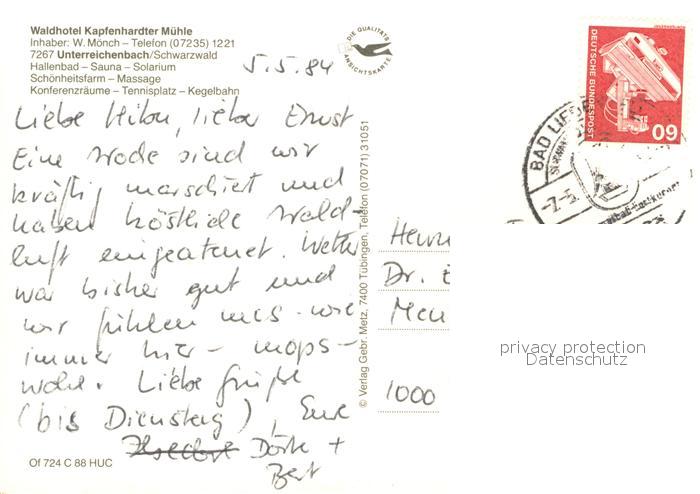 Waldhotel Kapfenhardter Mühle
Inhaber: W. Mönch – Telefon (07235) 1221
7267 Unterreichenbach/Schwarzwald
Hallenbad – Sauna – Solarium
Schönheitsfarm – Massage
Konferenzräume – Tennisplatz – Kegelbahn
5.5.84
DIE QUALITÄTS
ANSICHTSKARTE
Liebe Hilou, lieber Ernst
Eine Woche sind wir
kräftig marschiert und
haben köstliche Wald-
luft eingeatmet. Wetter
war bisher gut und
wir fühlen uns wie
immer hier – mops-
wohl. Liebe Grüße
(bis Dienstag), Eure
Dörte +
Bert
Of 724 C 88 HUC
© Verlag Gebr. Metz, 7400 Tübingen, Telefon (07071) 31051
DEUTSCHE BUNDESPOST
60
BAD LIEBE
-7.-5.
Herrn
Dr. E
1000
privacy protection
Datenschutz